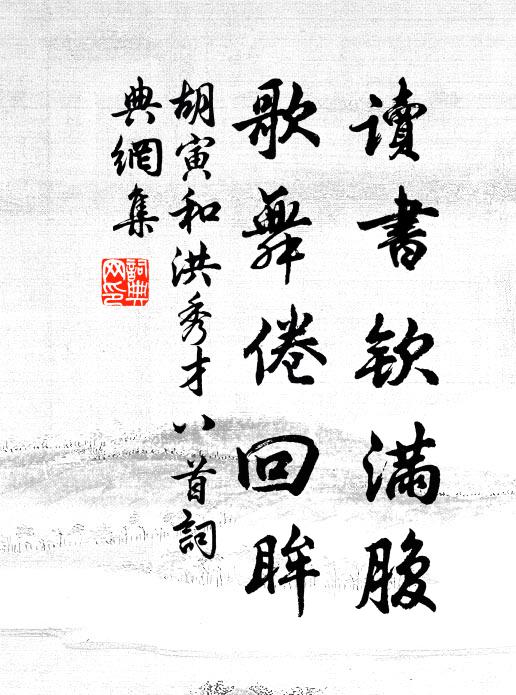 讀書欽滿腹
歌舞倦回眸
胡寅和洪秀才八首詞
典網集
詞典網印